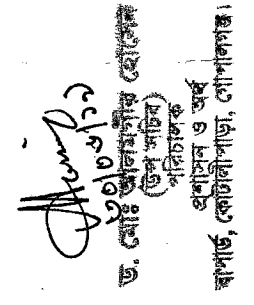 ৩০/০৮/২১
ড. মোঃ আলমগীর হোসেন
(উপ সচিব)
পরিচালক
প্রশাসন ও অর্থ
বাপার্ড, কোটালীপাড়া, গোপালগঞ্জ।